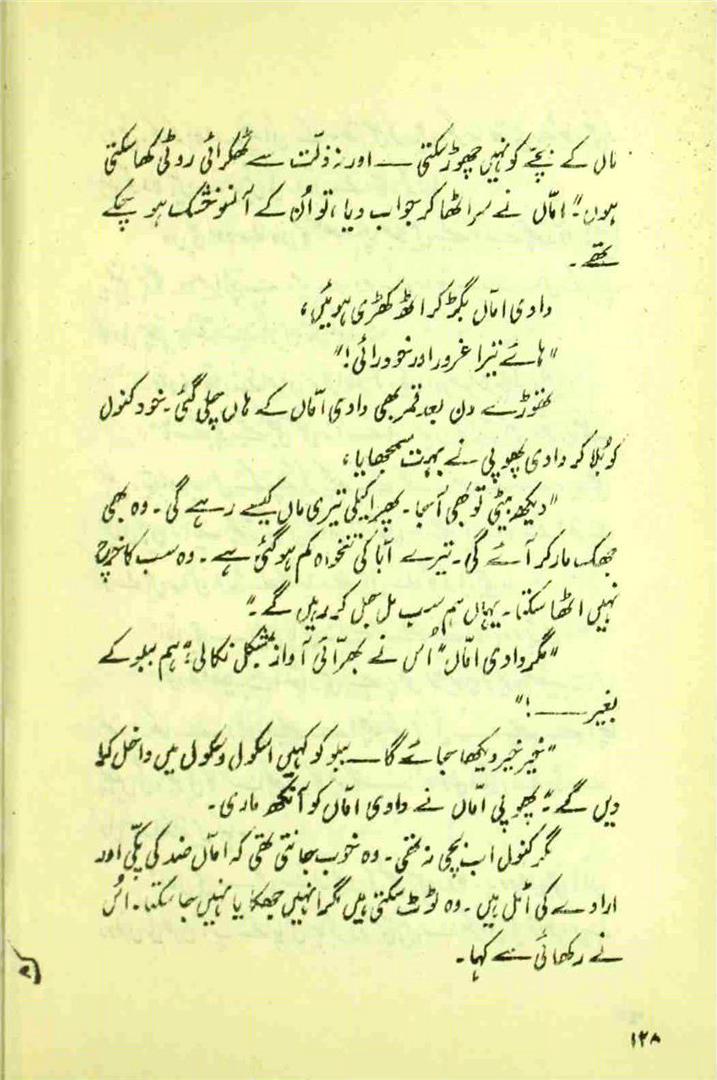 ماں کے بچّے کو نہیں چھوڑ سکتی — اور نہ ذلّت سے ٹھکرائی روٹی کھا سکتی
ہوں"۔ امّاں نے سر اٹھا کر جواب دیا، تو اُن کے آنسو خشک ہو چکے
تھے۔
دادی امّاں بگڑ کر اٹھ کھڑی ہوئیں،
"ہائے تیرا غرور اور خود رائی!"
تھوڑے دن بعد قمر بھی دادی امّاں کے ہاں چلی گئی۔ خود کنول
کو بُلا کر دادی پھوپی نے بہت سمجھایا،
"دیکھ بیٹی تو بھی آ جا۔ پھر اکیلی تیری ماں کیسے رہے گی۔ وہ بھی
جھک مار کر آئے گی۔ تیرے ابّا کی تنخواہ کم ہو گئی ہے۔ وہ سب کا خرچ
نہیں اٹھا سکتا۔ یہاں ہم سب مل جل کر رہیں گے۔"
"مگر دادی امّاں" اُس نے بھرّائی آواز بمشکل نکالی؛ "ہم ببلو کے
بغیر——!"
"خیر خیر دیکھا جائے گا — ببلو کو کہیں اسکول وسکول میں داخل کرا
دیں گے"۔ پھوپی امّاں نے دادی امّاں کو آنکھ ماری۔
مگر کنول اب بچی نہ تھی۔ وہ خوب جانتی تھی کہ امّاں ضد کی پکّی اور
ارادے کی اٹل ہیں۔ وہ ٹوٹ سکتی ہیں مگر انہیں جھکایا نہیں جا سکتا۔ اُس
نے رکھائی سے کہا۔
۱۲۸